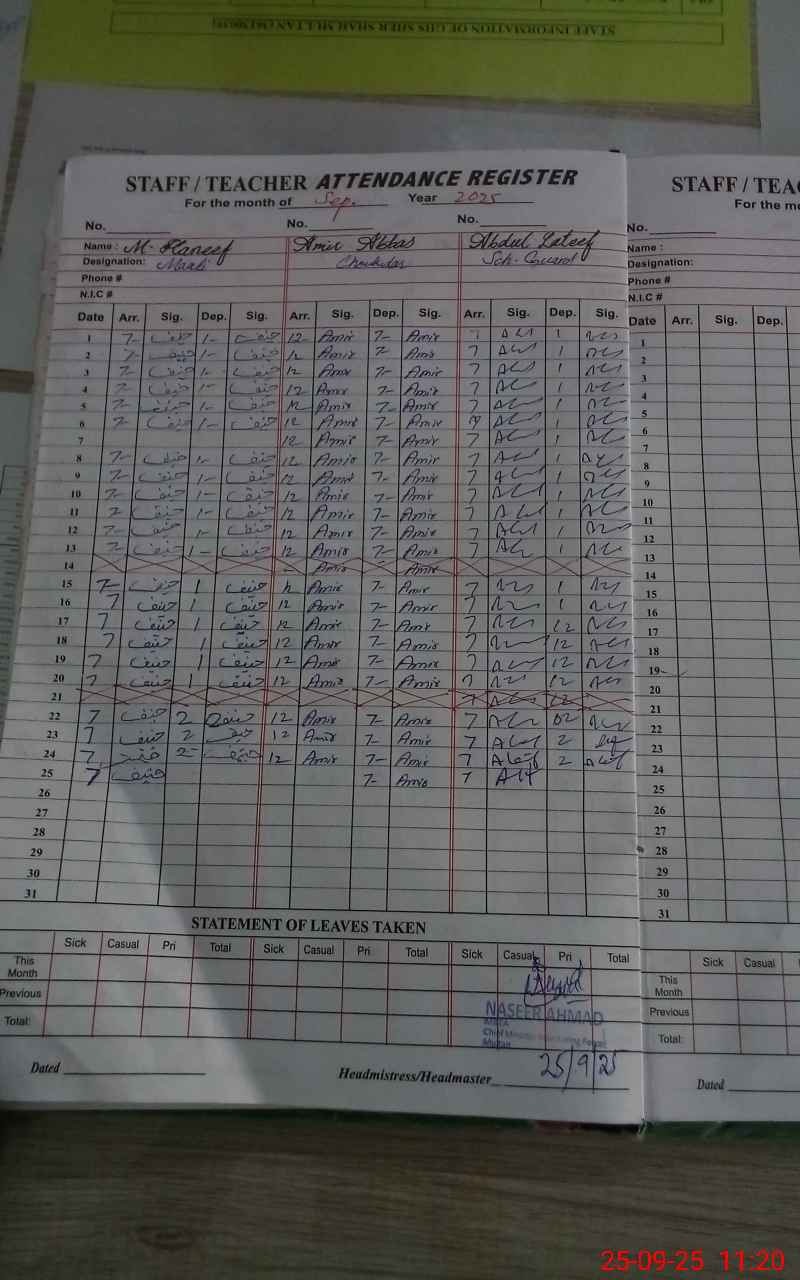 STAFF INFORMATION OF GHS SHER SHAH MULTAN
STAFF / TEACHER ATTENDANCE REGISTER
For the month of Sep. Year 2025
No. No. No.
Name : M. Haneef Amir Abbas Abdul Lateef
Designation: Maali Chukidar Sch. Guard
Phone #
N.I.C #
Date Arr. Sig. Dep. Sig. Arr. Sig. Dep. Sig. Arr. Sig. Dep. Sig.
1 7- حنیف 1- حنیف 12 Amir 7- Amir 7 1
2 7- حنیف 1- حنیف 12 Amir 7- Amir 7 1
3 7- حنیف 1- حنیف 12 Amir 7- Amir 7 1
4 7- حنیف 1- حنیف 12 Amir 7- Amir 7 1
5 7- حنیف 1- حنیف 12 Amir 7- Amir 7 1
6 7- حنیف 1- حنیف 12 Amir 7- Amir 7 1
7 12 Amir 7- Amir 7 1
8 7- حنیف 1- حنیف 12 Amir 7- Amir 7 1
9 7- حنیف 1- حنیف 12 Amir 7- Amir 7 1
10 7- حنیف 1- حنیف 12 Amir 7- Amir 7 1
11 7 حنیف 1- حنیف 12 Amir 7- Amir 7 1
12 7- حنیف 1- حنیف 12 Amir 7- Amir 7 1
13 7- حنیف 1- حنیف 12 Amir 7- Amir 7 1
14 Amir Amir
15 7- حنیف 1 حنیف 12 Amir 7- Amir 7 1
16 7 حنیف 1 حنیف 12 Amir 7- Amir 7 1
17 7 حنیف 1 حنیف 12 Amir 7- Amir 7 12
18 7 حنیف 1 حنیف 12 Amir 7- Amir 7 12
19 7 حنیف 1 حنیف 12 Amir 7- Amir 7 12
20 7 حنیف 1 حنیف 12 Amir 7- Amir 7 12
21 7 12
22 7 حنیف 2 حنیف 12 Amir 7- Amir 7 02
23 7 حنیف 2 حنیف 12 Amir 7- Amir 7 2
24 7 حنیف 2- حنیف 12 Amir 7- Amir 7 2
25 7 حنیف 7- Amir 7
26
27
28
29
30
31
STATEMENT OF LEAVES TAKEN
Sick Casual Pri Total Sick Casual Pri Total Sick Casual Pri Total
This Month
Previous
Total:
NASEER AHMAD
MEA
Chief Minister Monitoring Force
Multan
25/9/25
Dated Headmistress/Headmaster
STAFF / TEA
For the mo
No.
Name :
Designation:
Phone #
N.I.C #
Date Arr. Sig. Dep.
1
2
3
4
5
6
7
8
9
10
11
12
13
14
15
16
17
18
19
20
21
22
23
24
25
26
27
28
29
30
31
Sick Casual
This Month
Previous
Total:
Dated
25-09-25 11:20